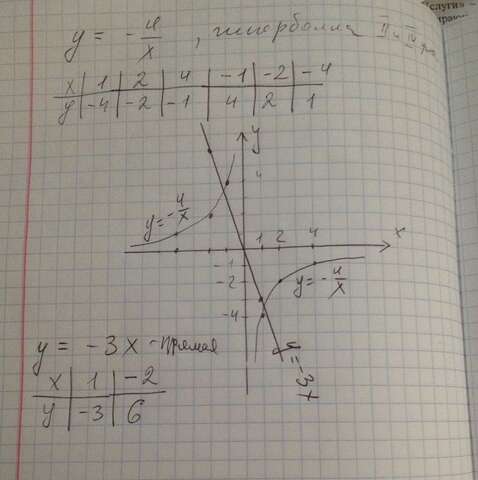 y = - 4/x , гипербола II и IV
x | 1 | 2 | 4 | -1 | -2 | -4
y | -4 | -2 | -1 | 4 | 2 | 1
y
4
y = - 4/x
x
1 2 4
-1
-2
-4
y = - 4/x
y = -3x
y = -3x - прямая
x | 1 | -2
y | -3 | 6